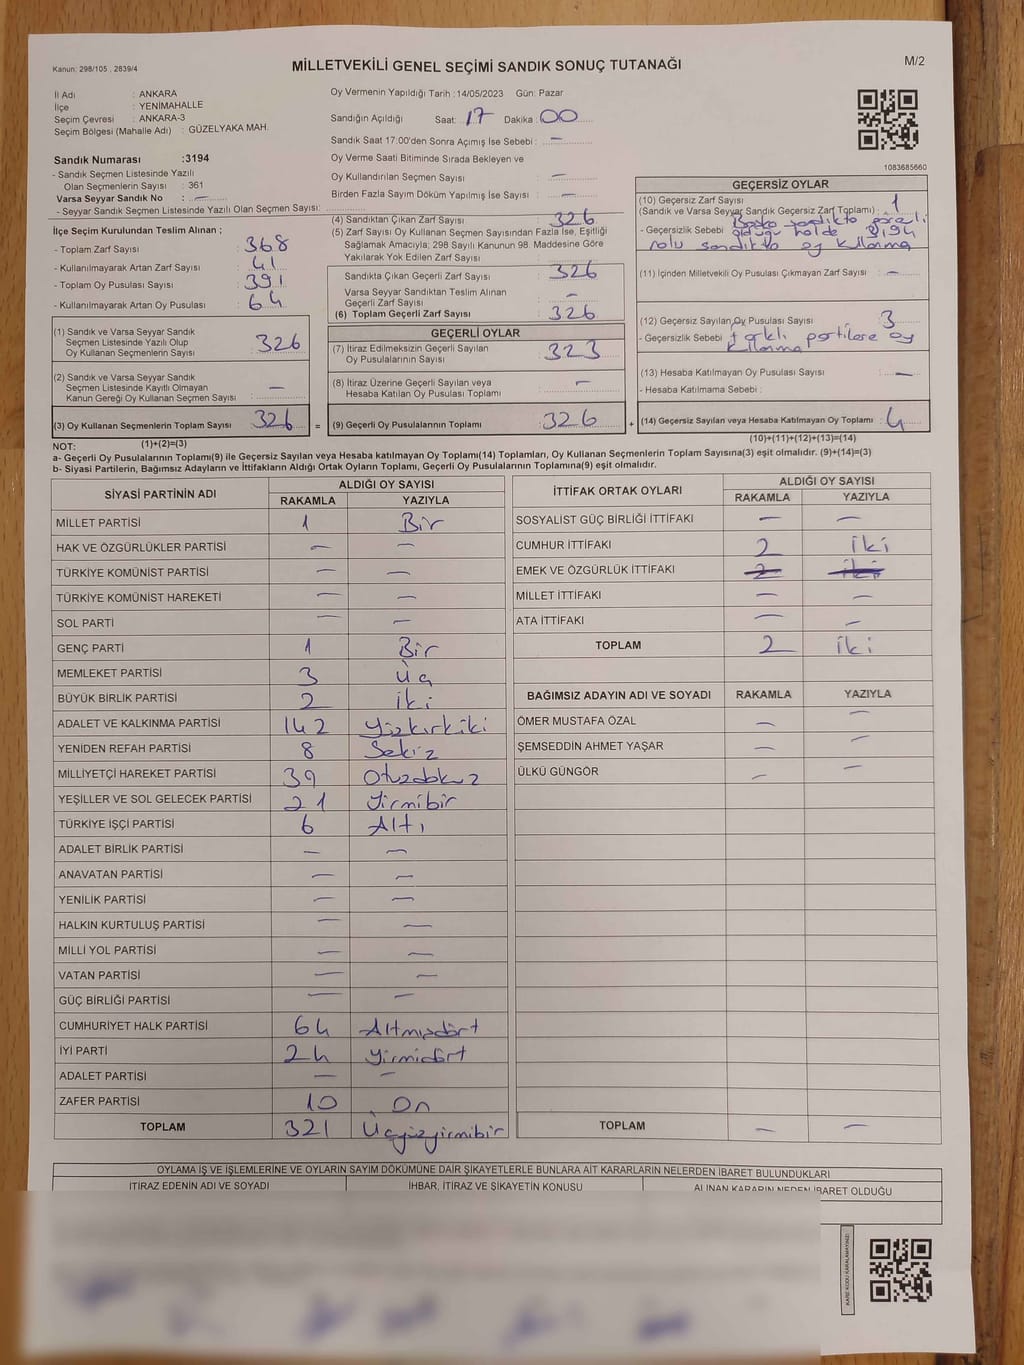 Kanun: 298/105 , 2839/4
MİLLETVEKİLİ GENEL SEÇİMİ SANDIK SONUÇ TUTANAĞI
M/2
İl Adı : ANKARA
İlçe : YENİMAHALLE
Seçim Çevresi : ANKARA-3
Seçim Bölgesi (Mahalle Adı) : GÜZELYAKA MAH.
Sandık Numarası :3194
- Sandık Seçmen Listesinde Yazılı
Olan Seçmenlerin Sayısı : 361
Varsa Seyyar Sandık No : —
- Seyyar Sandık Seçmen Listesinde Yazılı Olan Seçmen Sayısı:
İlçe Seçim Kurulundan Teslim Alınan ;
- Toplam Zarf Sayısı : 368
- Kullanılmayarak Artan Zarf Sayısı : 41
- Toplam Oy Pusulası Sayısı : 391
- Kullanılmayarak Artan Oy Pusulası : 64
(1) Sandık ve Varsa Seyyar Sandık
Seçmen Listesinde Yazılı Olup
Oy Kullanan Seçmenlerin Sayısı : 326
(2) Sandık ve Varsa Seyyar Sandık
Seçmen Listesinde Kayıtlı Olmayan
Kanun Gereği Oy Kullanan Seçmen Sayısı : —
(3) Oy Kullanan Seçmenlerin Toplam Sayısı : 326
(1)+(2)=(3)
Oy Vermenin Yapıldığı Tarih :14/05/2023 Gün: Pazar
Sandığın Açıldığı Saat: 17 Dakika : 00
Sandık Saat 17:00'den Sonra Açımış İse Sebebi : —
Oy Verme Saati Bitiminde Sırada Bekleyen ve
Oy Kullandırılan Seçmen Sayısı : —
Birden Fazla Sayım Döküm Yapılmış İse Sayısı : —
(4) Sandıktan Çıkan Zarf Sayısı : 326
(5) Zarf Sayısı Oy Kullanan Seçmen Sayısından Fazla İse, Eşitliği
Sağlamak Amacıyla; 298 Sayılı Kanunun 98. Maddesine Göre
Yakılarak Yok Edilen Zarf Sayısı :
Sandıkta Çıkan Geçerli Zarf Sayısı : 326
Varsa Seyyar Sandıktan Teslim Alınan
Geçerli Zarf Sayısı : —
(6) Toplam Geçerli Zarf Sayısı : 326
GEÇERLİ OYLAR
(7) İtiraz Edilmeksizin Geçerli Sayılan
Oy Pusulalarının Sayısı : 323
(8) İtiraz Üzerine Geçerli Sayılan veya
Hesaba Katılan Oy Pusulası Toplamı : —
= (9) Geçerli Oy Pusulalarının Toplamı : 326 +
1083685660
GEÇERSİZ OYLAR
(10) Geçersiz Zarf Sayısı : 1
(Sandık ve Varsa Seyyar Sandık Geçersiz Zarf Toplamı)
- Geçersizlik Sebebi : Başka sandıkta görevli
olduğu halde 3194
nolu sandıkta oy kullanma
(11) İçinden Milletvekili Oy Pusulası Çıkmayan Zarf Sayısı : —
(12) Geçersiz Sayılan Oy Pusulası Sayısı : 3
- Geçersizlik Sebebi : farklı partilere oy
kullanma
(13) Hesaba Katılmayan Oy Pusulası Sayısı : —
- Hesaba Katılmama Sebebi :
(14) Geçersiz Sayılan veya Hesaba Katılmayan Oy Toplamı : 4
(10)+(11)+(12)+(13)=(14)
NOT:
a- Geçerli Oy Pusulasının Toplamı(9) ile Geçersiz Sayılan veya Hesaba katılmayan Oy Toplamı(14) Toplamları, Oy Kullanan Seçmenlerin Toplam Sayısına(3) eşit olmalıdır. (9)+(14)=(3)
b- Siyasi Partilerin, Bağımsız Adayların ve İttifakların Aldığı Ortak Oyların Toplamı, Geçerli Oy Pusulalarının Toplamına(9) eşit olmalıdır.
SİYASİ PARTİNİN ADI ALDIĞI OY SAYISI
RAKAMLA YAZIYLA
MİLLET PARTİSİ 1 Bir
HAK VE ÖZGÜRLÜKLER PARTİSİ — —
TÜRKİYE KOMÜNİST PARTİSİ — —
TÜRKİYE KOMÜNİST HAREKETİ — —
SOL PARTİ — —
GENÇ PARTİ 1 Bir
MEMLEKET PARTİSİ 3 Üç
BÜYÜK BİRLİK PARTİSİ 2 iki
ADALET VE KALKINMA PARTİSİ 142 Yüzkırkiki
YENİDEN REFAH PARTİSİ 8 Sekiz
MİLLİYETÇİ HAREKET PARTİSİ 39 Otuzdokuz
YEŞİLLER VE SOL GELECEK PARTİSİ 21 Yirmibir
TÜRKİYE İŞÇİ PARTİSİ 6 Altı
ADALET BİRLİK PARTİSİ — —
ANAVATAN PARTİSİ — —
YENİLİK PARTİSİ — —
HALKIN KURTULUŞ PARTİSİ — —
MİLLİ YOL PARTİSİ — —
VATAN PARTİSİ — —
GÜÇ BİRLİĞİ PARTİSİ — —
CUMHURİYET HALK PARTİSİ 64 Altmışdört
İYİ PARTİ 24 Yirmidört
ADALET PARTİSİ — —
ZAFER PARTİSİ 10 On
TOPLAM 321 Üçyüzyirmibir
İTTİFAK ORTAK OYLARI ALDIĞI OY SAYISI
RAKAMLA YAZIYLA
SOSYALİST GÜÇ BİRLİĞİ İTTİFAKI — —
CUMHUR İTTİFAKI 2 iki
EMEK VE ÖZGÜRLÜK İTTİFAKI 2 iki
MİLLET İTTİFAKI — —
ATA İTTİFAKI — —
TOPLAM 2 iki
BAĞIMSIZ ADAYIN ADI VE SOYADI RAKAMLA YAZIYLA
ÖMER MUSTAFA ÖZAL — —
ŞEMSEDDİN AHMET YAŞAR — —
ÜLKÜ GÜNGÖR — —
TOPLAM — —
OYLAMA İŞ VE İŞLEMLERİNE VE OYLARIN SAYIM DÖKÜMÜNE DAİR ŞİKAYETLERLE BUNLARA AİT KARARLARIN NELERDEN İBARET BULUNDUKLARI
İTİRAZ EDENİN ADI VE SOYADI İHBAR, İTİRAZ VE ŞİKAYETİN KONUSU ALINAN KARARIN NEDEN İBARET OLDUĞU
KARE KODU KARALAMAYINIZ!